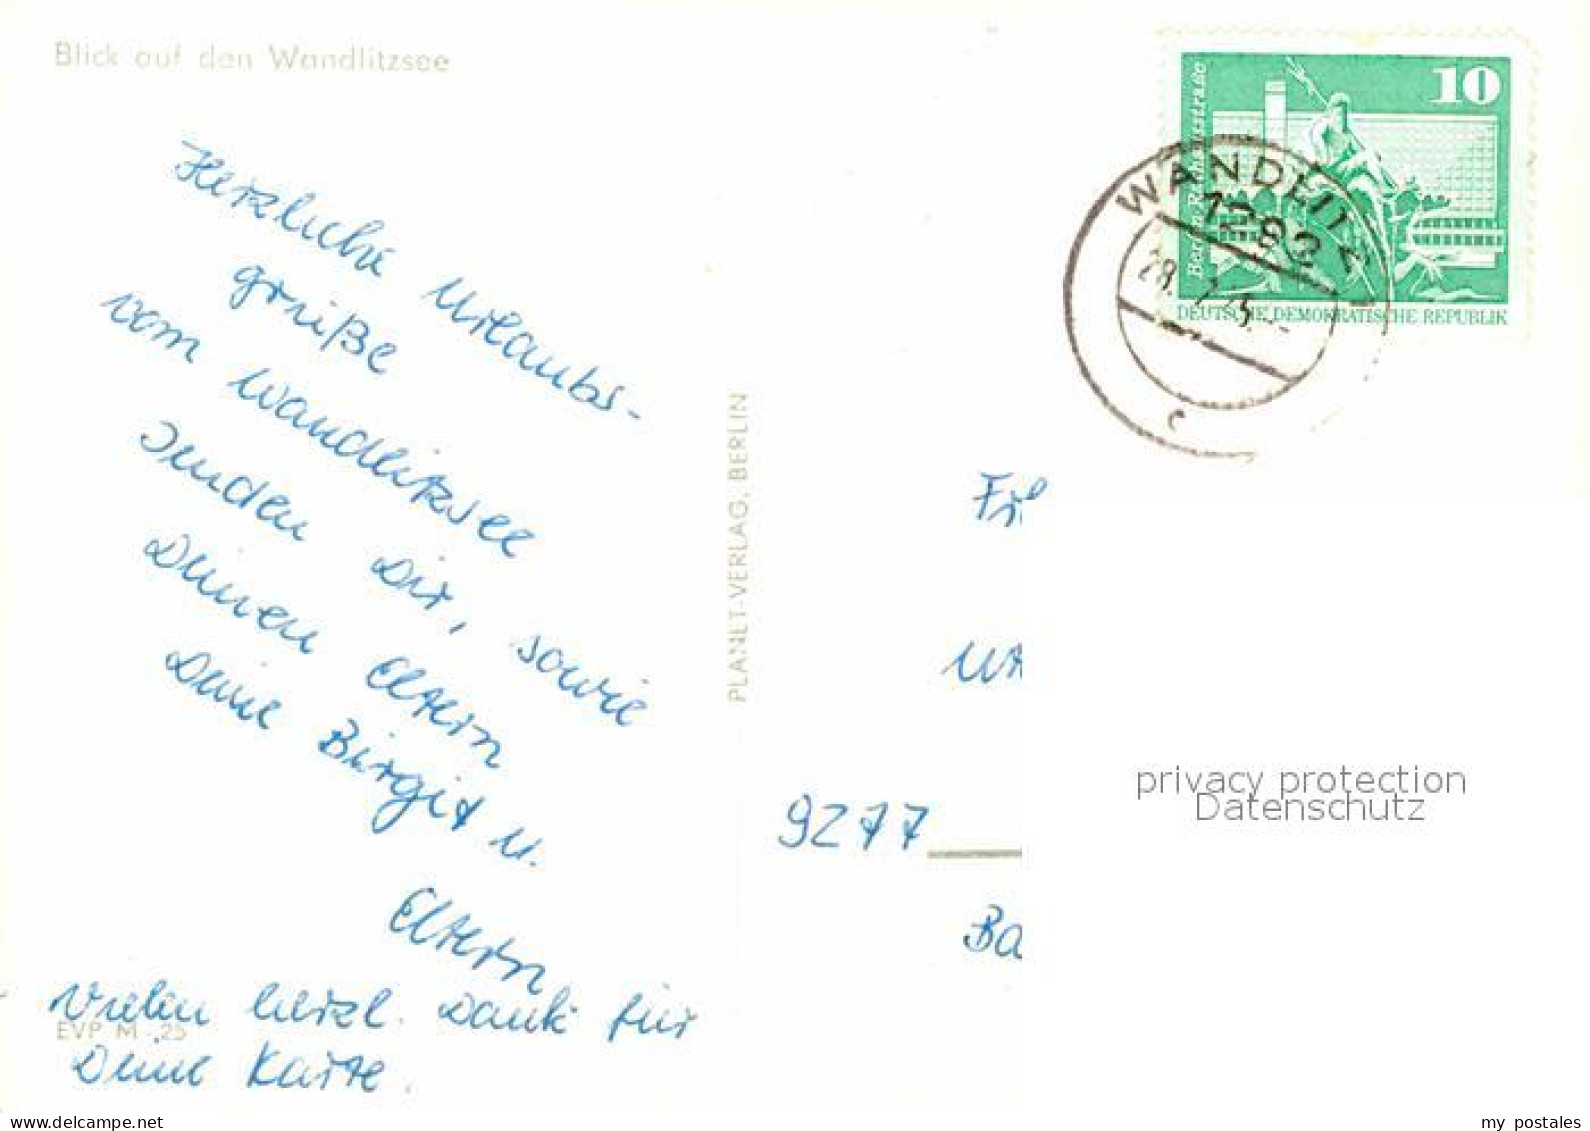 Blick auf den Wandlitzsee
Herzliche Urlaubs-
grüße
vom Wandlitzsee
senden Dir, sowie
Deinen Eltern
Deine Birgit u.
Eltern
Vielen herzl. Dank für
Deine Karte.
EVP M -.25
PLANET-VERLAG, BERLIN
10
Berlin-Rathausstraße
DEUTSCHE DEMOKRATISCHE REPUBLIK
WANDLITZ
1292
c
9277
Ba
privacy protection
Datenschutz
my postales